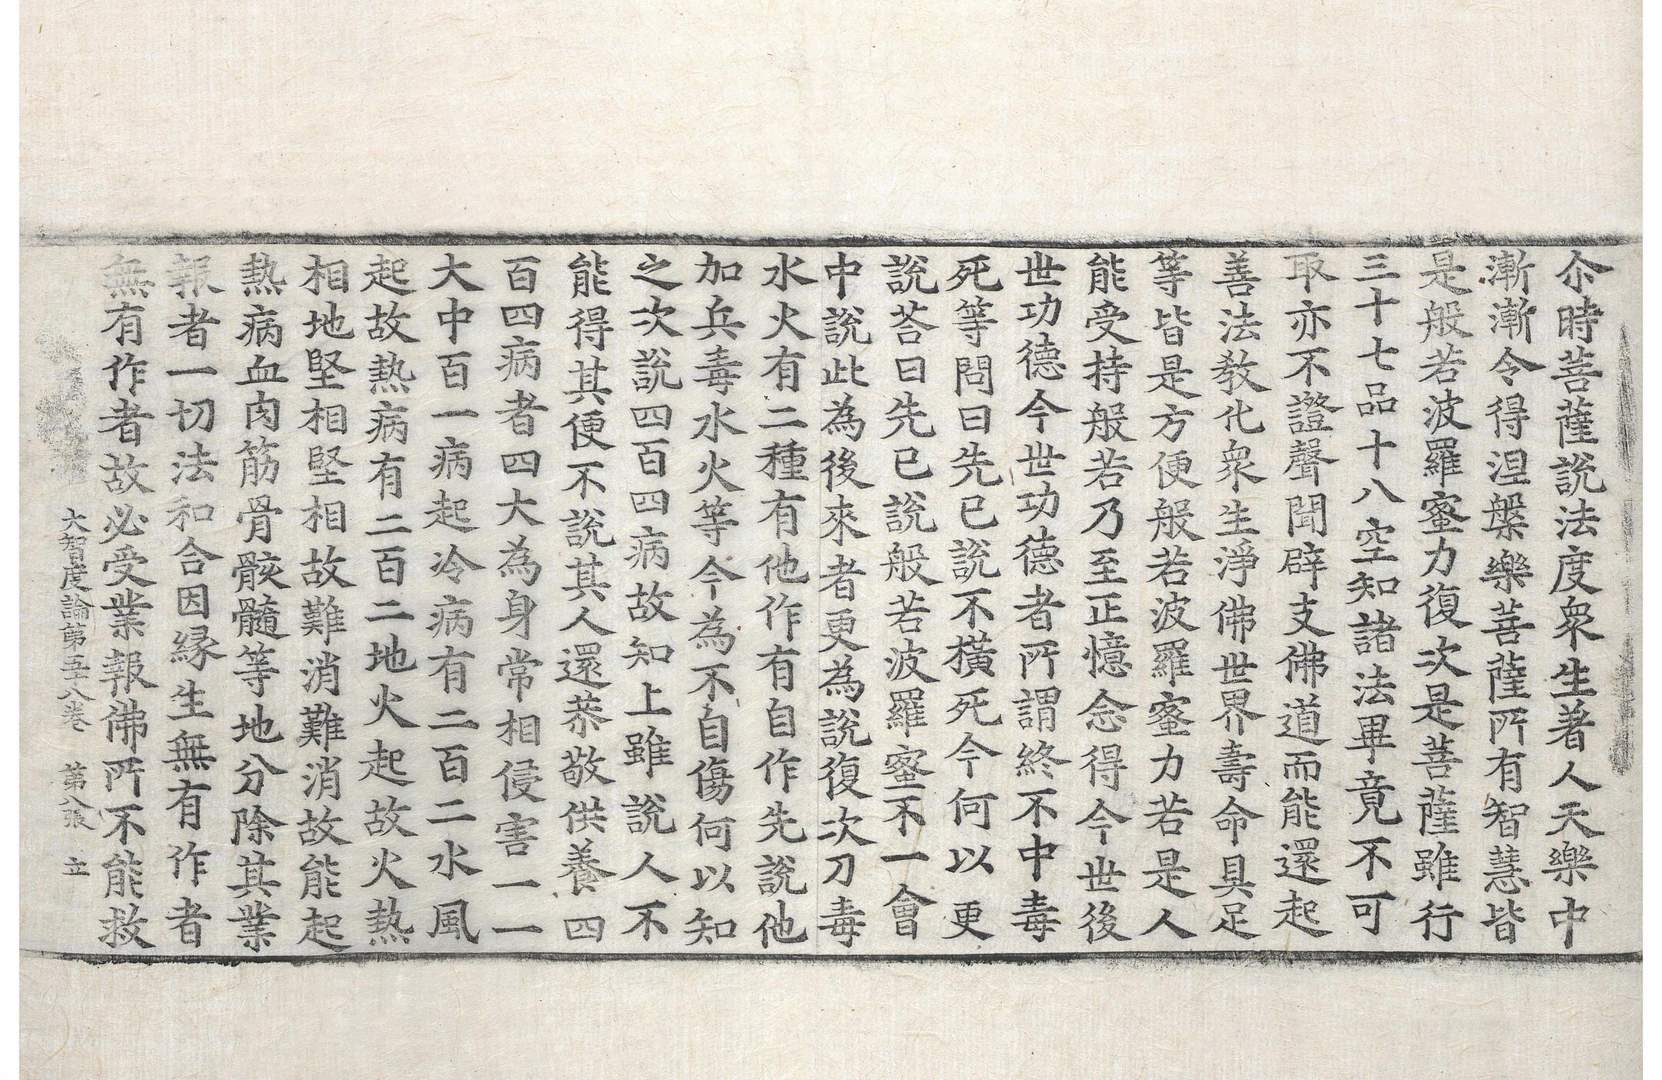 尒時菩薩說法度衆生著人天樂中
漸漸令得涅槃樂菩薩所有智慧皆
是般若波羅蜜力復次是菩薩雖行
三十七品十八空知諸法畢竟不可
取亦不證聲聞辟支佛道而能還起
善法教化衆生淨佛世界壽命具足
等皆是方便般若波羅蜜力若是人
能受持般若乃至正憶念得今世後
世功德今世功德者所謂終不中毒
死等問曰先已說不橫死今何以更
說荅曰先已說般若波羅蜜不一會
中說此為後來者更為說復次刀毒
水火有二種有他作有自作先說他
加兵毒水火等今為不自傷何以知
之次說四百四病故知上雖說人不
能得其便不說其人還恭敬供養四
百四病者四大為身常相侵害一一
大中百一病起冷病有二百二水風
起故熱病有二百二地火起故火熱
相地堅相堅相故難消難消故能起
熱病血肉筋骨骸髓等地分除其業
報者一切法和合因緣生無有作者
無有作者故必受業報佛所不能救
大智度論第五十八卷 第八張 立